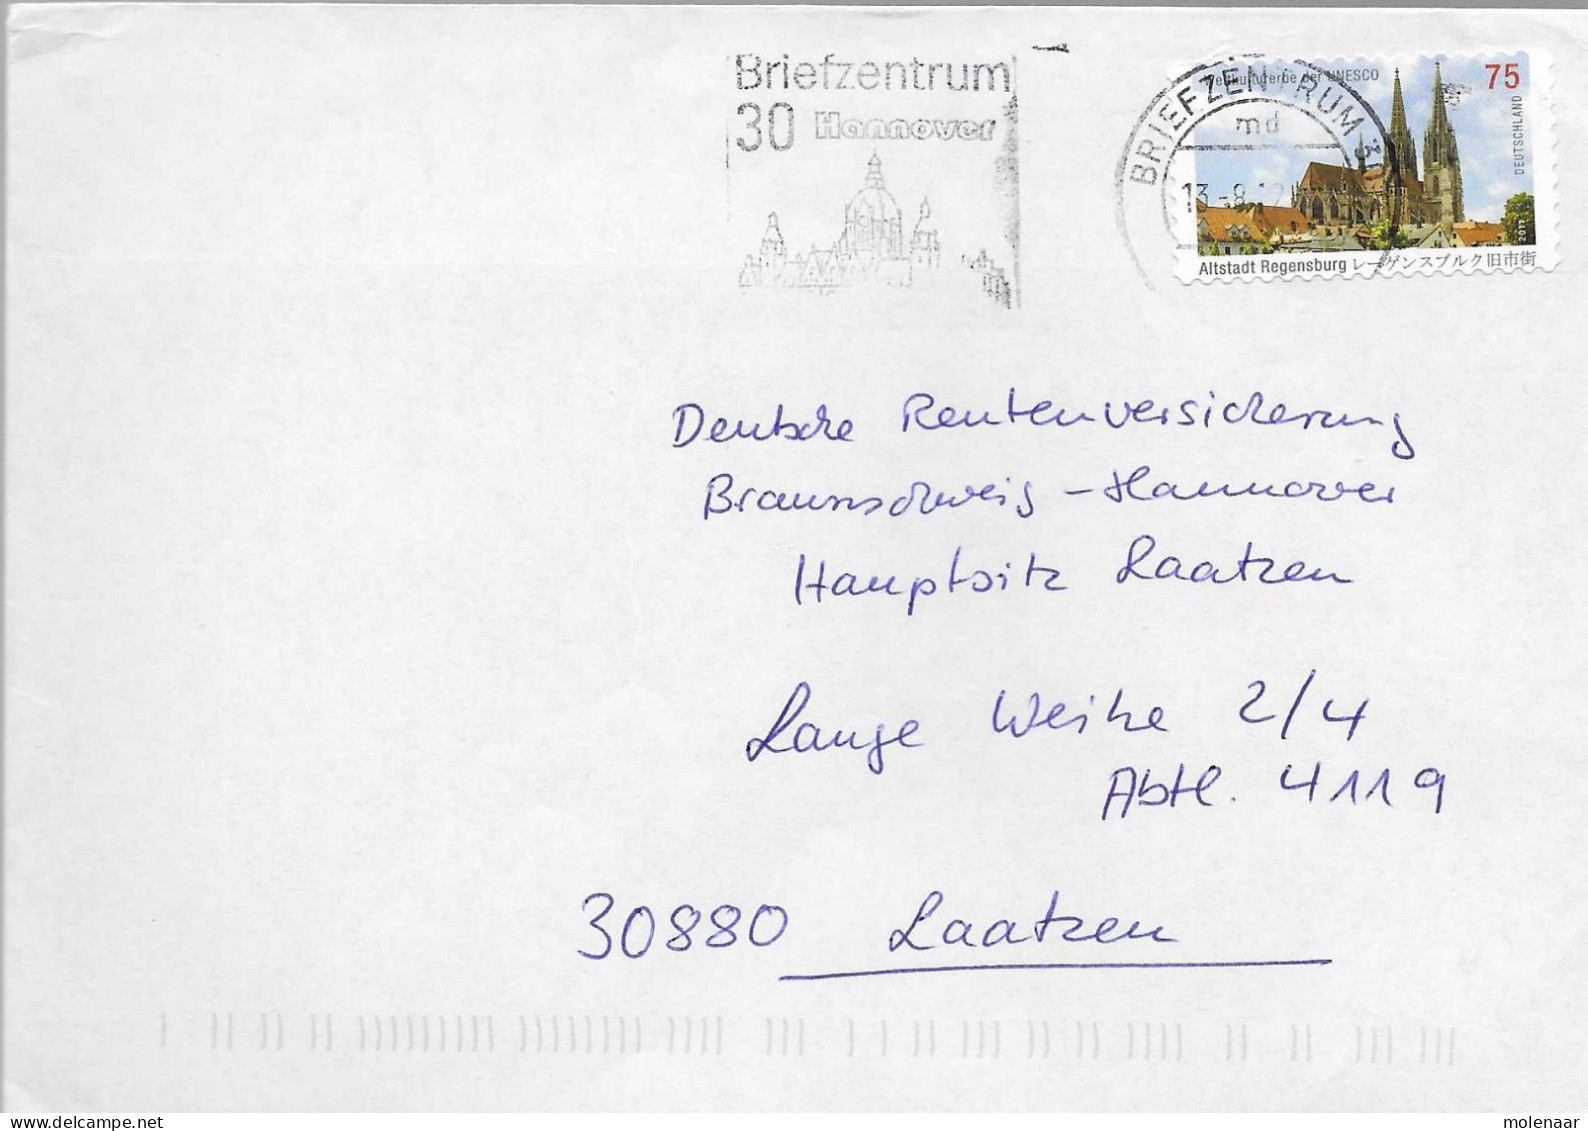 Briefzentrum
30 Hannover
BRIEFZENTRUM 3
md
13.-8.12
Weltkulturerbe der UNESCO
75
DEUTSCHLAND
2011
Altstadt Regensburg レーゲンスブルク旧市街
Deutsche Rentenversicherung
Braunschweig - Hannover
Hauptsitz Laatzen
Lange Weihe 2/4
Abtl. 4119
30880 Laatzen
molenaar